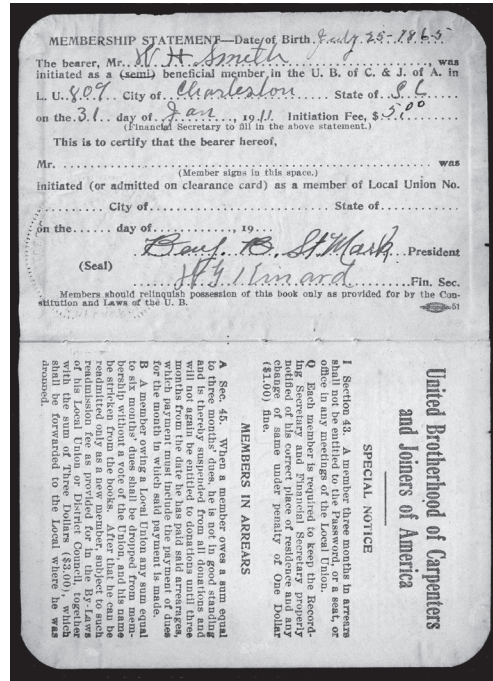 MEMBERSHIP STATEMENT—Date of Birth. July 25-1865
The bearer, Mr. W H Smith, was
initiated as a (semi) beneficial member in the U. B. of C. & J. of A. in
L. U. 809. City of Charleston State of S C
on the 31 day of Jan, 1911 Initiation Fee, $ 5.00
(Financial Secretary to fill in the above statement.)
This is to certify that the bearer hereof,
Mr. was
(Member signs in this space.)
initiated (or admitted on clearance card) as a member of Local Union No.
City of State of
on the day of, 19
Benj. B. St Mark President
(Seal)
Fin. Sec.
Members should relinquish possession of this book only as provided for by the Con-
stitution and Laws of the U. B.
51
United Brotherhood of Carpenters
and Joiners of America
SPECIAL NOTICE
I Section 43. A member three months in arrears
shall not be entitled to the Password, or a seat, or
office in any meetings of the Local Union.
Q Each member is required to keep the Record-
ing Secretary and Financial Secretary properly
notified of his correct place of residence and any
change of same under penalty of One Dollar
($1.00) fine.
MEMBERS IN ARREARS
A Sec. 45. When a member owes a sum equal
to three months' dues, he is not in good standing
and is thereby suspended from all donations and
will not again be entitled to donations until three
months from the date he has paid said arrearages,
which payment must include the payment of dues
for the month in which said payment is made.
B A member owing a Local Union any sum equal
to six months' dues shall be dropped from mem-
bership without a vote of the Union, and his name
be stricken from the books. After that he can be
readmitted only as a new member, subject to such
readmission fee as provided for in the By-Laws
of his Local Union or District Council, together
with the sum of Three Dollars ($3.00), which
shall be forwarded to the Local where he was
dropped.